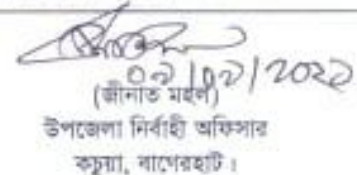 ০৯/০৯/2022
(জীনাত মহল)
উপজেলা নির্বাহী অফিসার
কচুয়া, বাগেরহাট।